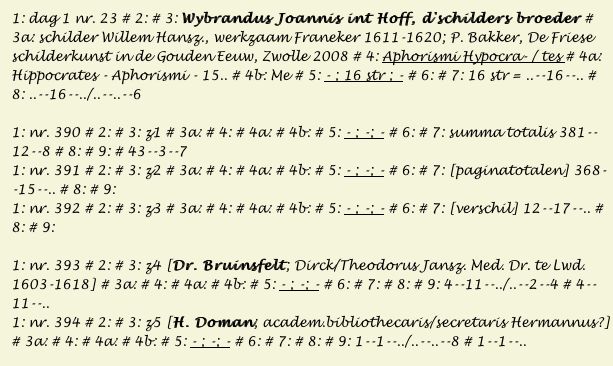 1: dag 1 nr. 23 # 2: # 3: Wybrandus Joannis int Hoff, d'schilders broeder #
3a: schilder Willem Hansz., werkzaam Franeker 1611-1620; P. Bakker, De Friese
schilderkunst in de Gouden Eeuw, Zwolle 2008 # 4: Aphorismi Hypocra- / tes # 4a:
Hippocrates - Aphorismi - 15.. # 4b: Me # 5: - ; 16 str ; - # 6: # 7: 16 str = ..--16--.. #
8: ..--16--../..--..--6
1: nr. 390 # 2: # 3: z1 # 3a: # 4: # 4a: # 4b: # 5: - ; -; - # 6: # 7: summa totalis 381--
12--8 # 8: # 9: # 43--3--7
1: nr. 391 # 2: # 3: z2 # 3a: # 4: # 4a: # 4b: # 5: - ; -; - # 6: # 7: [paginatotalen] 368-
-15--.. # 8: # 9:
1: nr. 392 # 2: # 3: z3 # 3a: # 4: # 4a: # 4b: # 5: - ; -; - # 6: # 7: [verschil] 12--17--.. #
8: # 9:
1: nr. 393 # 2: # 3: z4 [Dr. Bruinsfelt; Dirck/Theodorus Jansz. Med. Dr. te Lwd.
1603-1618] # 3a: # 4: # 4a: # 4b: # 5: - ; -; - # 6: # 7: # 8: # 9: 4--11--../..--2--4 # 4--
11--..
1: nr. 394 # 2: # 3: z5 [H. Doman; academ.bibliothecaris/secretaris Hermannus?]
# 3a: # 4: # 4a: # 4b: # 5: - ; -; - # 6: # 7: # 8: # 9: 1--1--../..--..--8 # 1--1--..